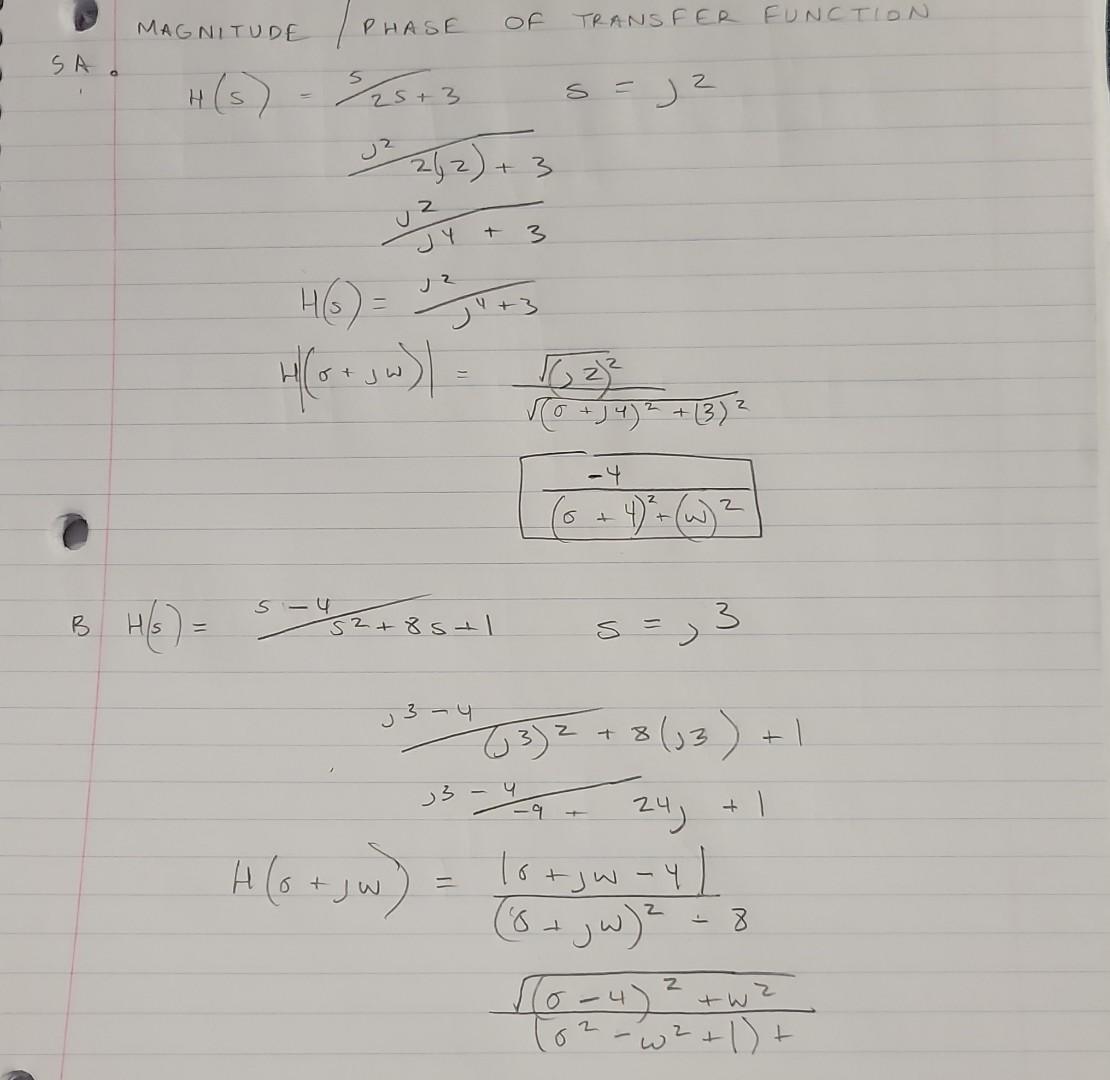 MAGNITUDE / PHASE OF TRANSFER FUNCTION
5A.
H(s) = s/2s+3 s = j2
j2/2(j2) + 3
j2/j4 + 3
H(s) = j2/j4+3
H|(σ + jw)| = √(j2)² / √(σ + j4)² + (3)²
-4 / (σ + 4)² + (w)²
B H(s) = s-4/s²+8s+1 s = j3
j3-4/(j3)² + 8(j3) + 1
j3-4/-9 + 24j + 1
H(σ + jw) = |σ + jw - 4| / (8 + jw)² - 8
√(σ-4)² + w² / (σ² - w² + 1) +